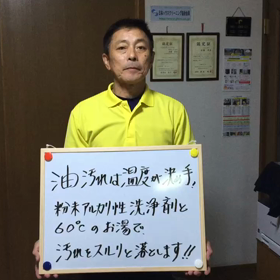 油汚れは温度が決め手!
粉末アルカリ性洗浄剤と
60℃のお湯で
汚れをスルリと落とします!!